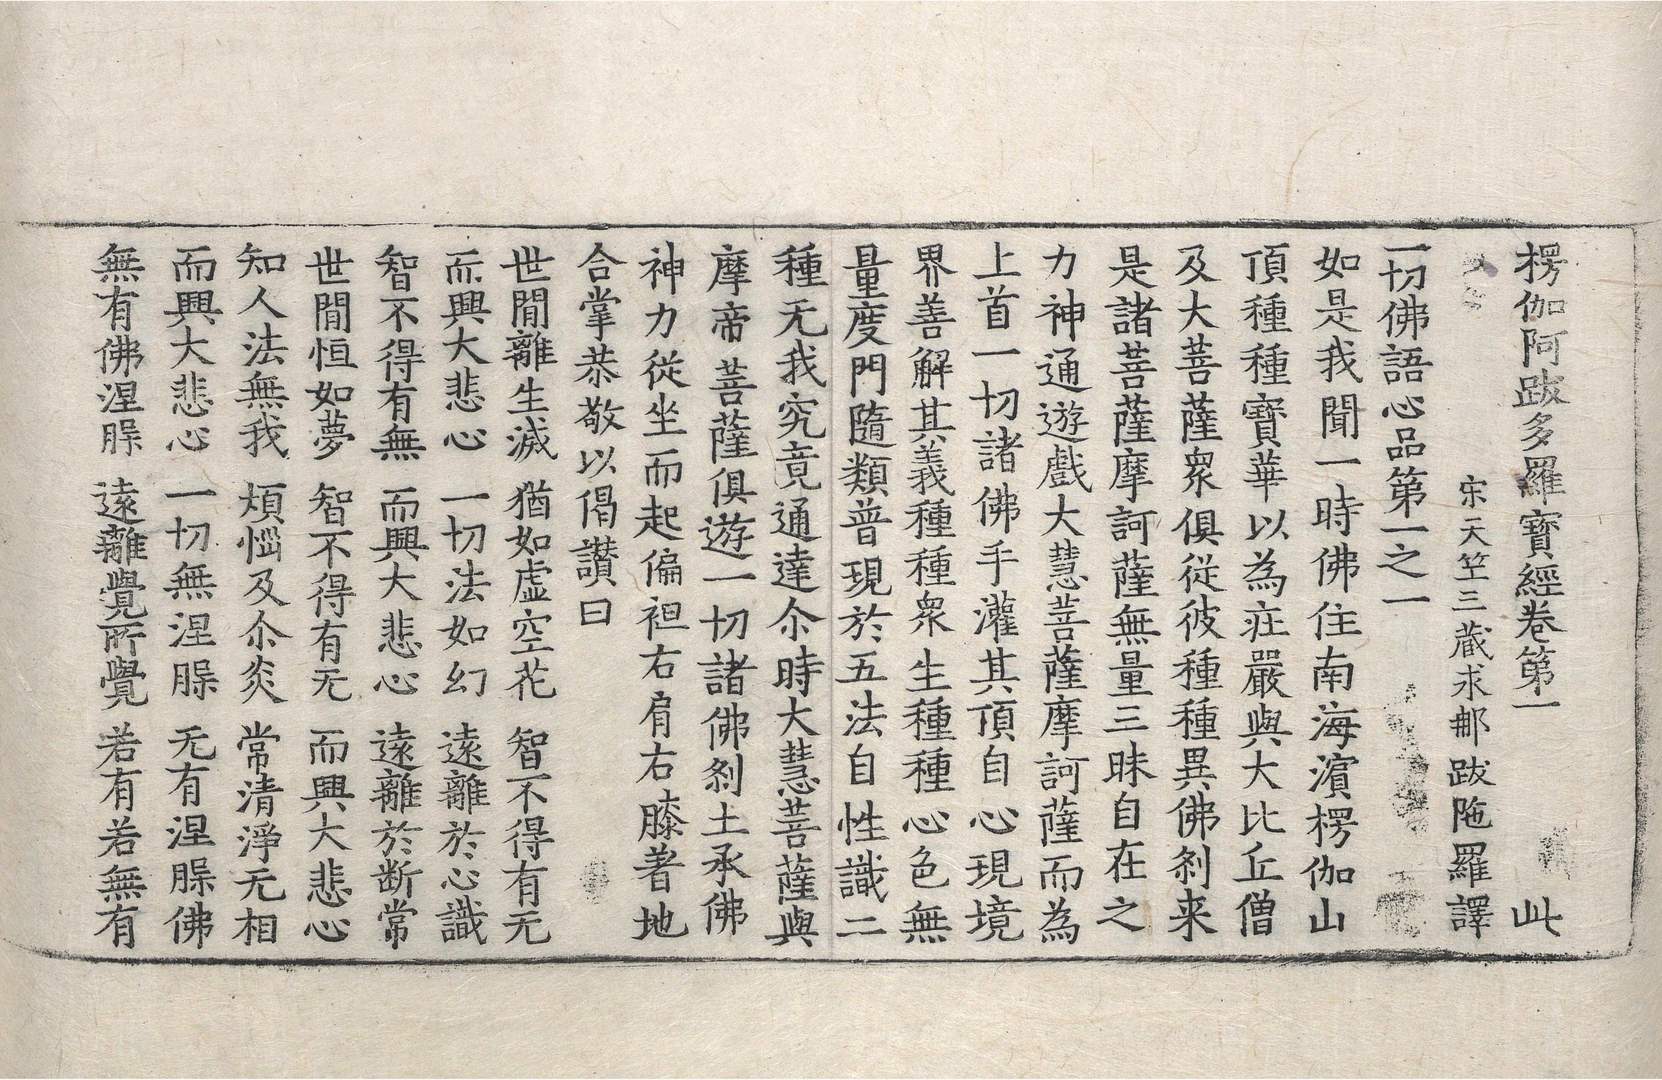 楞伽阿跋多羅寶經卷第一 此
宋天竺三藏求那跋陁羅譯
一切佛語心品第一之一
如是我聞一時佛住南海濱楞伽山
頂種種寶華以為庄嚴與大比丘僧
及大菩薩衆俱從彼種種異佛刹来
是諸菩薩摩訶薩無量三昧自在之
力神通遊戲大慧菩薩摩訶薩而為
上首一切諸佛手灌其頂自心現境
界善解其義種種衆生種種心色無
量度門隨類普現於五法自性識二
種无我究竟通達尒時大慧菩薩與
摩帝菩薩俱遊一切諸佛刹土承佛
神力從坐而起偏袒右肩右膝著地
合掌恭敬以偈讃曰
世間離生滅 猶如虛空花 智不得有无
而興大悲心 一切法如幻 遠離於心識
智不得有無 而興大悲心 遠離於断常
世間恒如夢 智不得有无 而興大悲心
知人法無我 煩惱及尒炎 常清淨无相
而興大悲心 一切無涅槃 无有涅槃佛
無有佛涅槃 遠離覺所覺 若有若無有